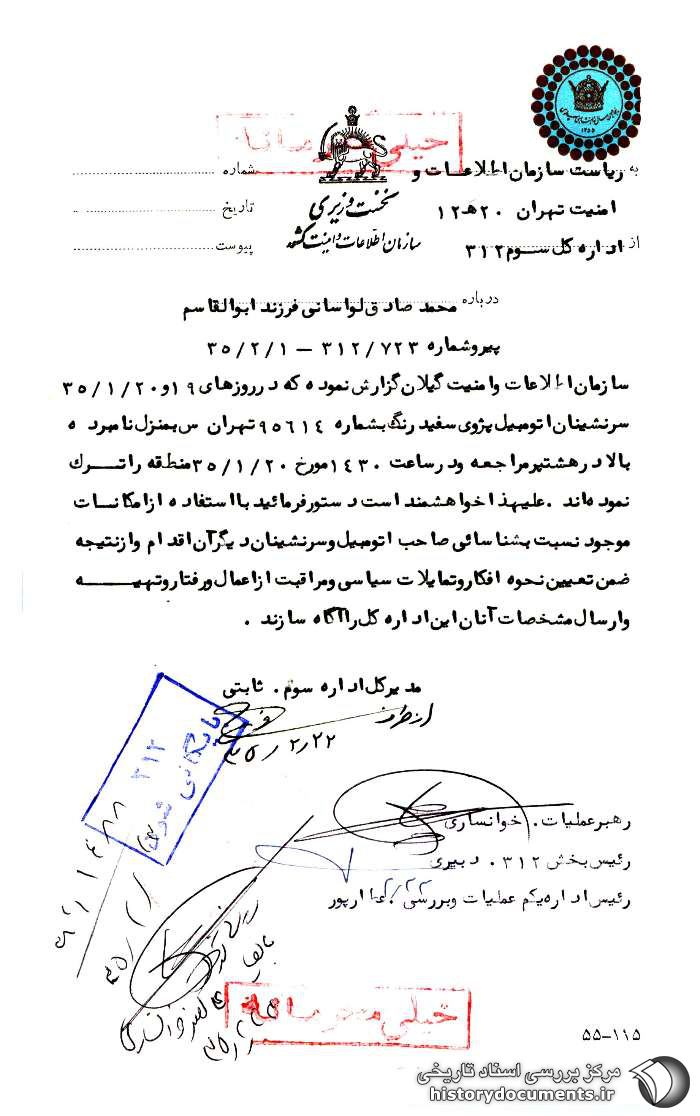 خیلی محرمانه
به ریاست سازمان اطلاعات و
امنیت تهران ۲۰هـ۱۲
از اداره کل سوم ۳۱۲
نخست وزیری
سازمان اطلاعات و امنیت کشور
شماره
تاریخ
پیوست
درباره محمد صادق لواسانی فرزند ابوالقاسم
پیرو شماره ۳۱۲/۷۲۳ – ۳۵/۲/۱
سازمان اطلاعات و امنیت گیلان گزارش نموده که در روزهای ۱۹و۳۵/۱/۲۰
سرنشینان اتومبیل پژوی سفید رنگ بشماره ۹۵۶۱۴ تهران س بمنزل نامبرده
بالا در هشتپر مراجعه و در ساعت ۱۴۳۰ مورخ ۳۵/۱/۲۰ منطقه را ترک
نموده‌اند . علیهذا خواهشمند است دستور فرمائید با استفاده از امکانات
موجود نسبت بشناسائی صاحب اتومبیل و سرنشینان دیگر آن اقدام و از نتیجه
ضمن تعیین نحوه افکار و تمایلات سیاسی و مراقبت از اعمال و رفتار و تهیه
و ارسال مشخصات آنان این اداره کل را آگاه سازند .
مدیر کل اداره سوم . ثابتی
از طرف
۳۵/۲/۲۲
بایگانی شد
۳۱۲
رهبر عملیات . خوانساری
رئیس بخش ۳۱۲ . دبیری
رئیس اداره یکم عملیات و بررسی . عطارپور
۲/۲۲
خیلی محرمانه
۵۵-۱۱۵
مرکز بررسی اسناد تاریخی
historydocuments.ir